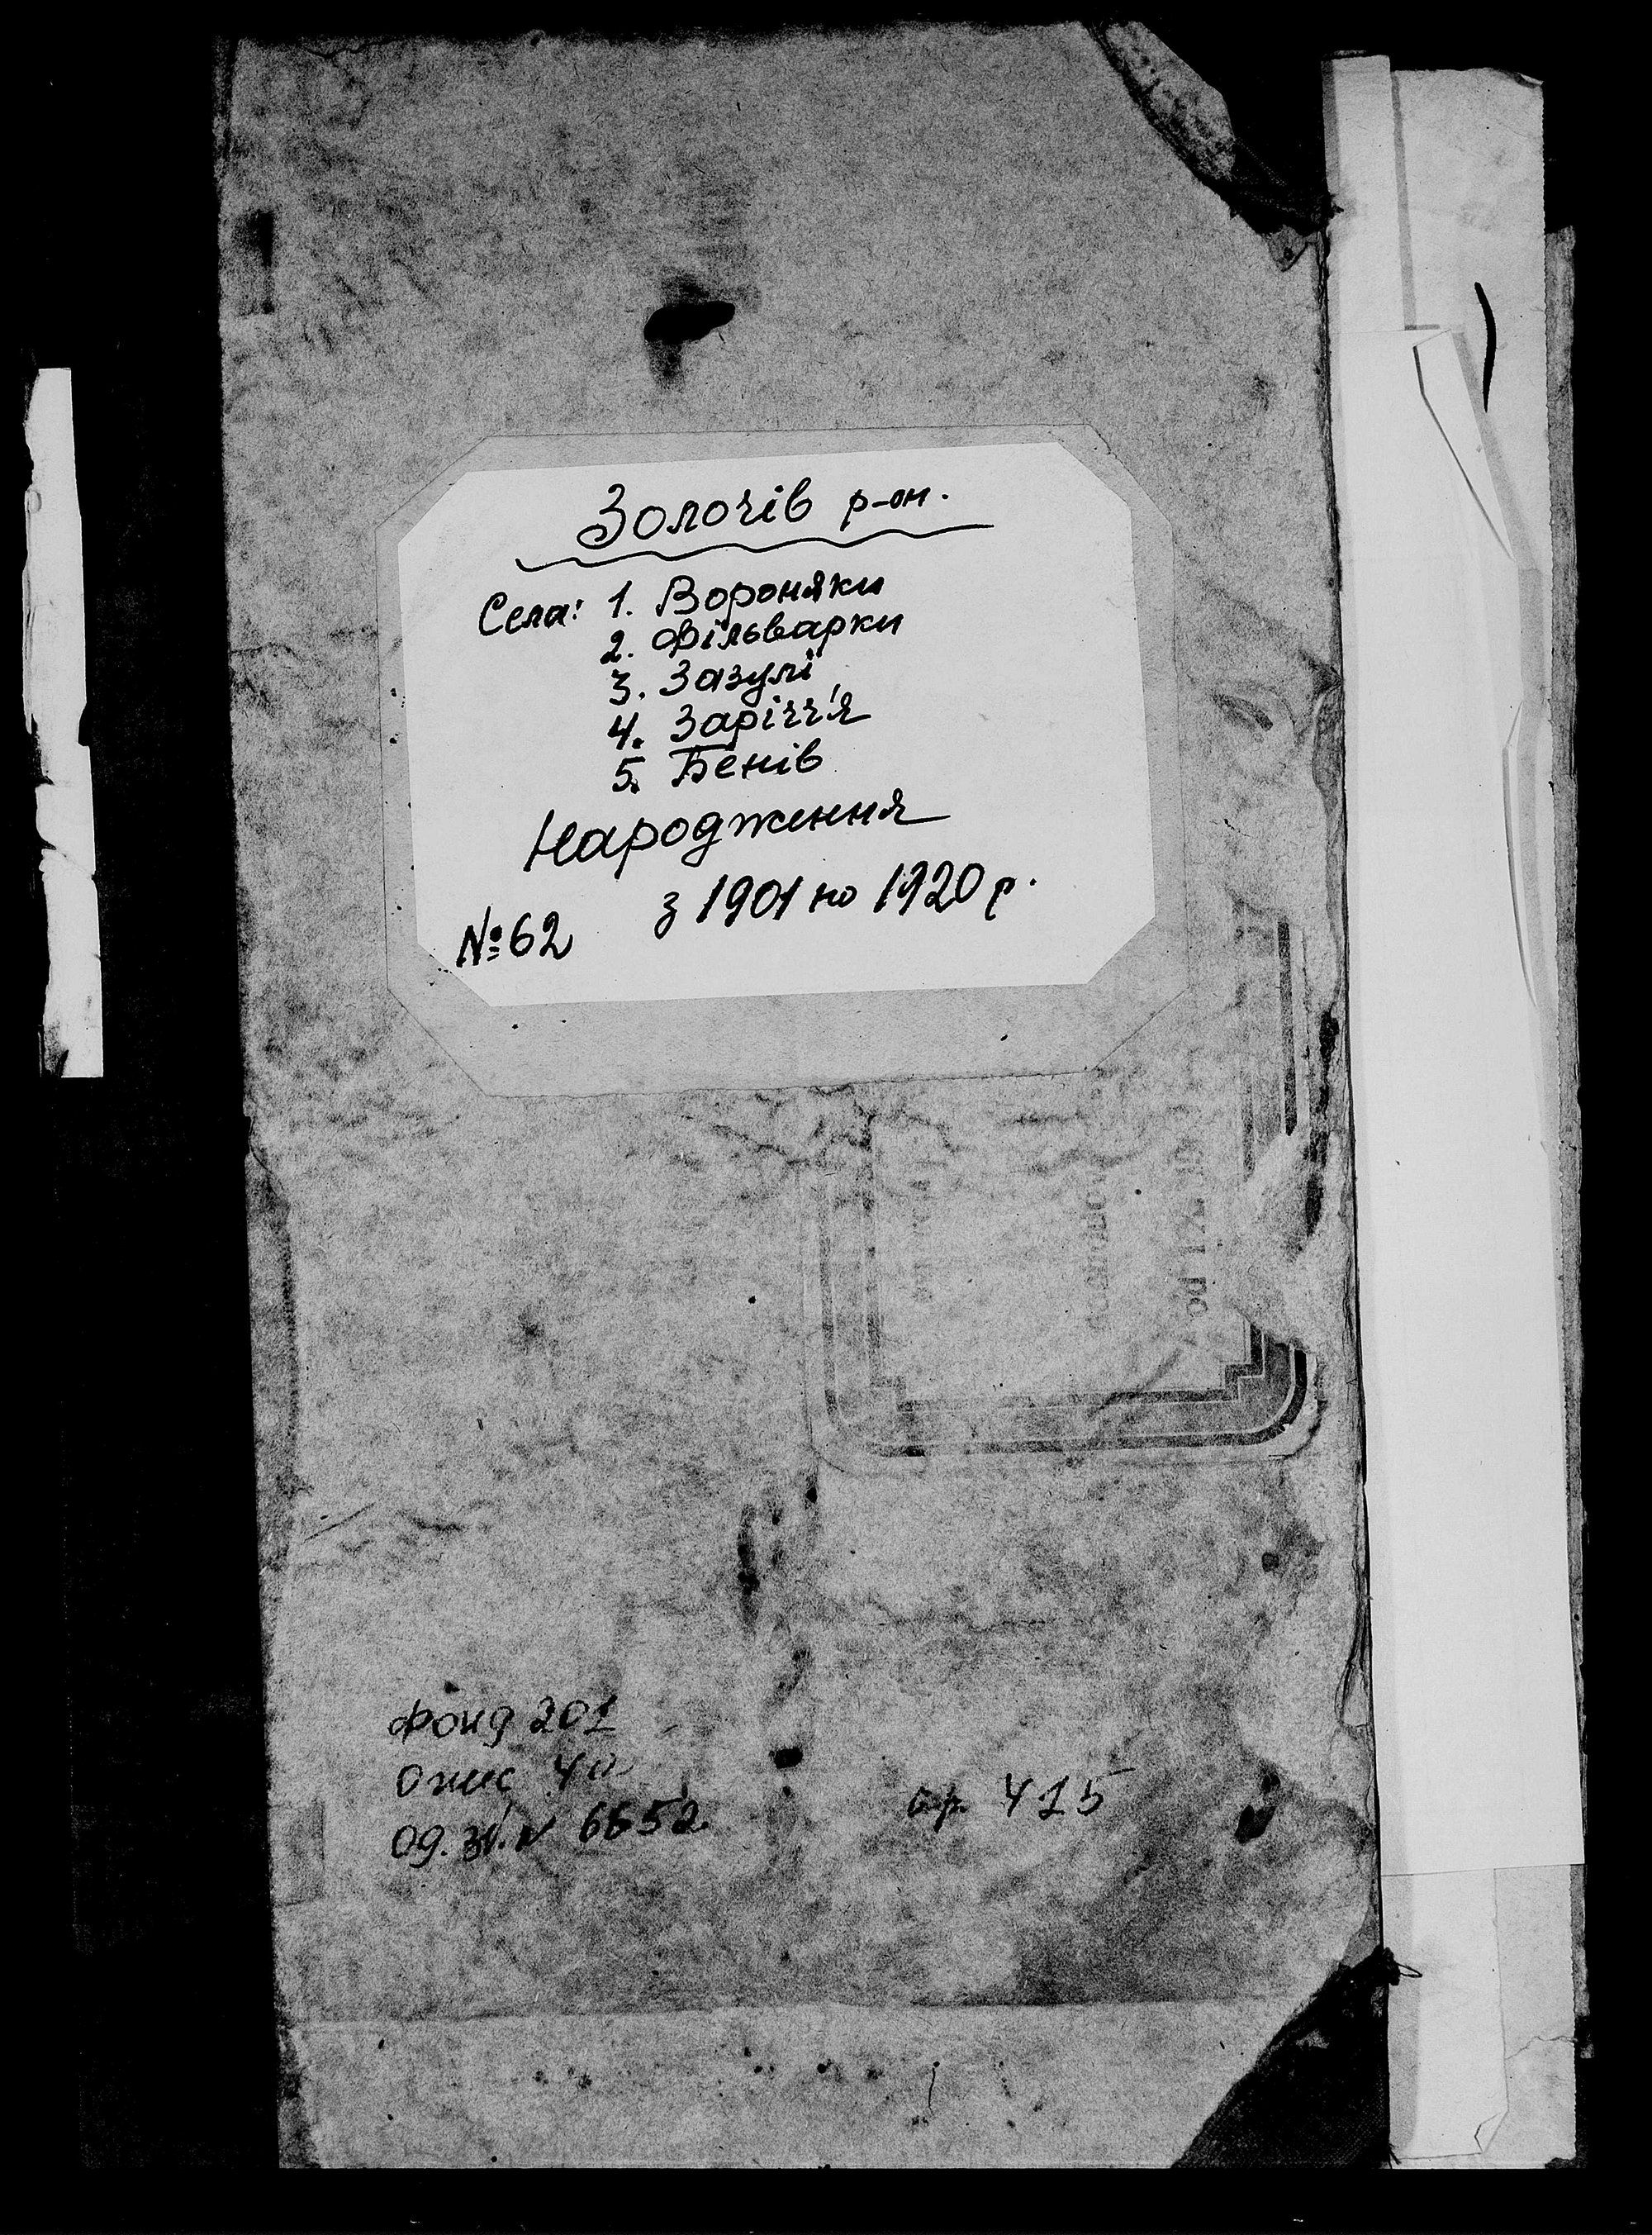 Золочів р-он.
Села: 1. Вороняки
2. Фільварки
3. Зазулі
4. Заріччя
5. Бенів
Народження
з 1901 по 1920 р.
№ 62
фонд 201
опис 4а
од. зб. № 6652
ар. 415